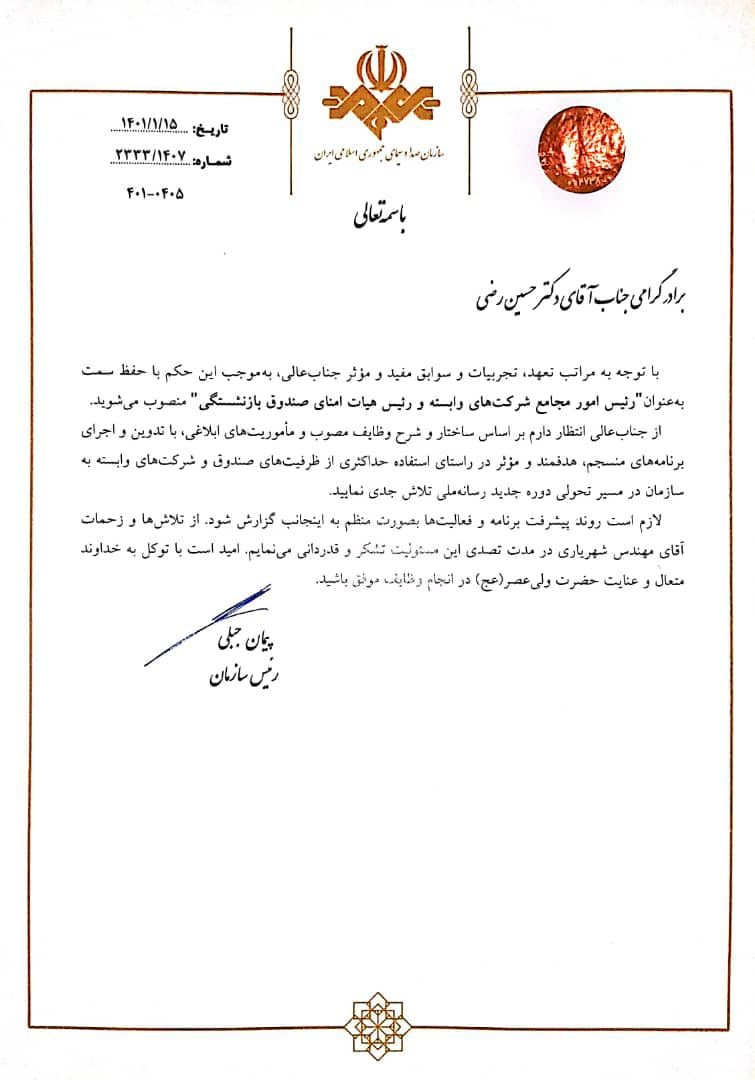 سازمان صدا و سیمای جمهوری اسلامی ایران
تاریخ: ۱۴۰۱/۱/۱۵
شماره: ۲۳۳۳/۱۴۰۷
۴۰۱-۰۴۰۵
باسمه تعالی
برادر گرامی جناب آقای دکتر حسین رضی
با توجه به مراتب تعهد، تجربیات و سوابق مفید و مؤثر جناب‌عالی، به‌موجب این حکم با حفظ سمت
به‌عنوان "رئیس امور مجامع شرکت‌های وابسته و رئیس هیات امنای صندوق بازنشستگی" منصوب می‌شوید.
از جناب‌عالی انتظار دارم بر اساس ساختار و شرح وظایف مصوب و مأموریت‌های ابلاغی، با تدوین و اجرای
برنامه‌های منسجم، هدفمند و مؤثر در راستای استفاده حداکثری از ظرفیت‌های صندوق و شرکت‌های وابسته به
سازمان در مسیر تحولی دوره جدید رسانه‌ملی تلاش جدی نمایید.
لازم است روند پیشرفت برنامه و فعالیت‌ها بصورت منظم به اینجانب گزارش شود. از تلاش‌ها و زحمات
آقای مهندس شهریاری در مدت تصدی این مسئولیت تشکر و قدردانی می‌نمایم. امید است با توکل به خداوند
متعال و عنایت حضرت ولی‌عصر(عج) در انجام وظایف موفق باشید.
پیمان جبلی
رئیس سازمان